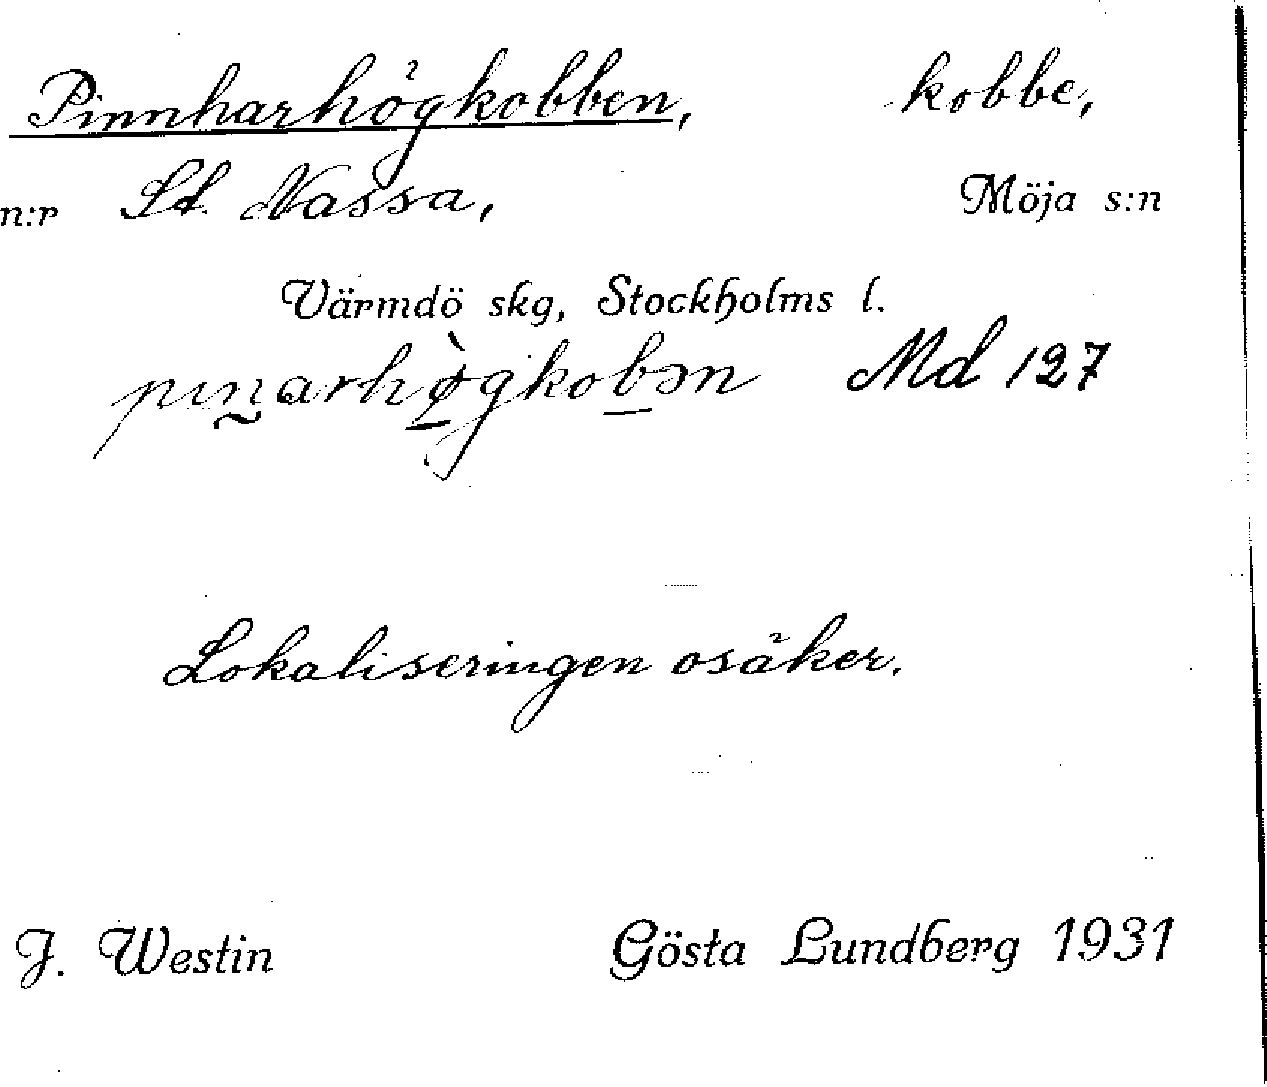 Pinnharhögkobben, kobbe,
n:r St. Nassa, Möja s:n
Värmdö skg, Stockholms l.
pınarhø̀gkobən Md 127
Lokaliseringen osäker.
J. Westin Gösta Lundberg 1931